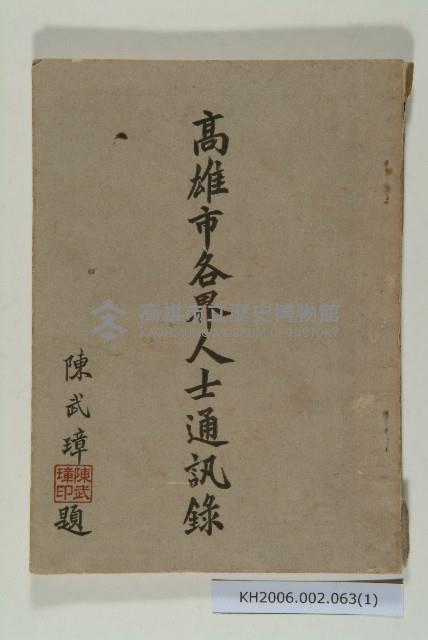 高雄市各界人士通訊錄
陳武璋題
陳武
璋印
高雄市立歷史博物館
KAOHSIUNG MUSEUM OF HISTORY
KH2006.002.063(1)